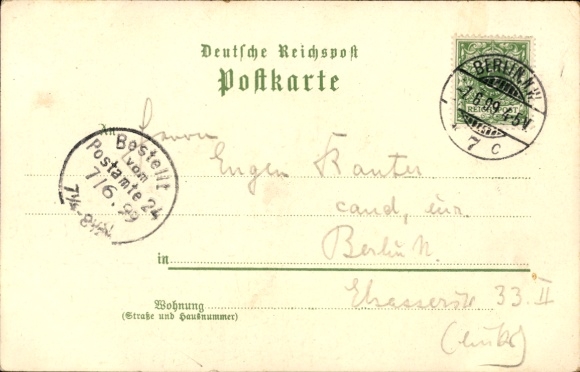 Deutsche Reichspost
Postkarte
BERLIN, N.
7.6.99. 7-8V.
REICHSPOST
7 c
An
Herrn
Bestellt
vom
Postamte 24
7/6. 99
7¼-8½V.
Eugen Kanter
cand. iur.
in Berlin N.
Elsasserstr 33. II
Wohnung
(Straße und Hausnummer)
(links)